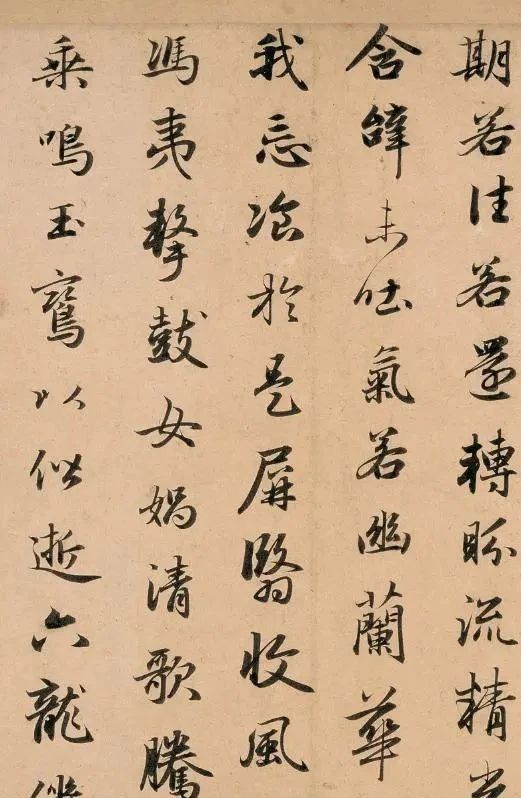 期若往若還轉盼流精
含辭未吐氣若幽蘭華
我忘飡於是屏翳收風
馮夷擊鼓女媧清歌騰
乘鳴玉鸞以偕逝六龍